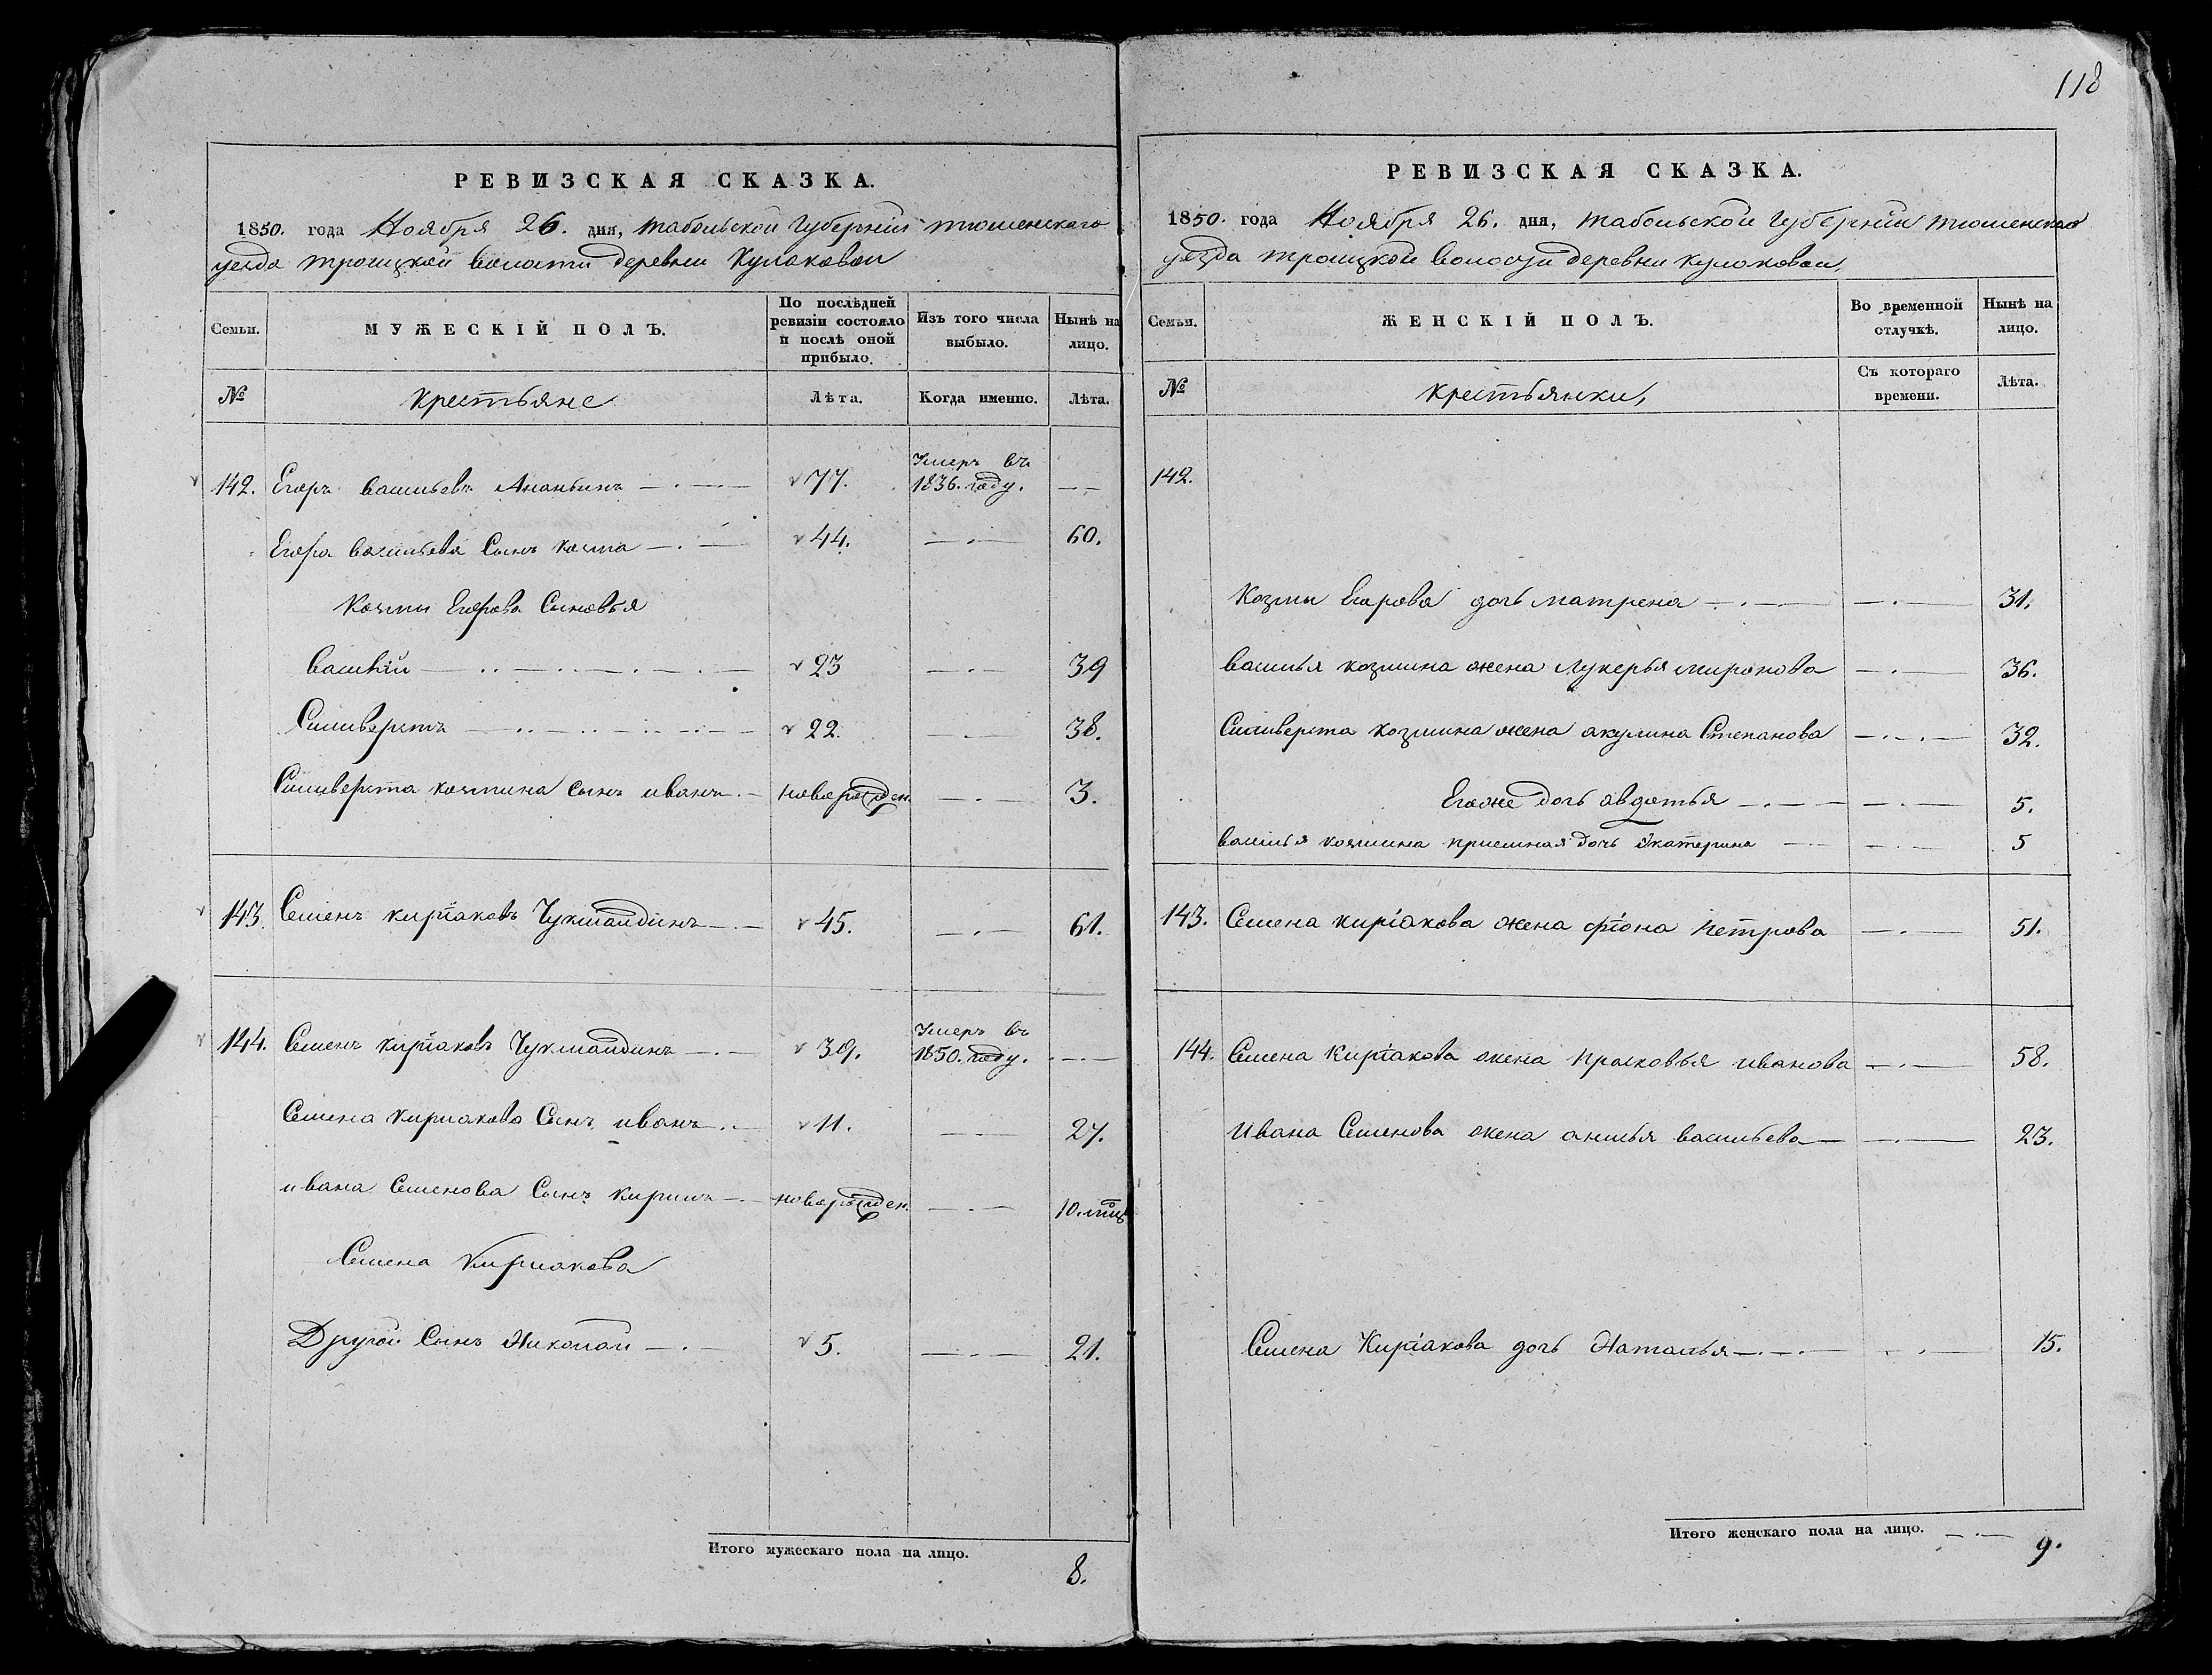 118
РЕВИЗСКАЯ СКАЗКА.
1850. года Ноября 26. дня, табольской Губерніи тюменскаго
уезда троицкой волости деревни Кулаковой
Семьи. МУЖЕСКІЙ ПОЛЪ. По послѣдней ревизіи состояло и послѣ оной прибыло. Изъ того числа выбыло. Нынѣ на лицо.
№ крестьяне Лѣта. Когда именно. Лѣта.
142. Егоръ васильевъ Ананьинъ 77. Умеръ въ 1836. году.
Егора васильева Сынъ козма 44. 60.
Козмы Егорова Сыновья
василій 23 39
Силиверстъ 22. 38.
Силиверста козмина сынъ иванъ новорожден. 3.
143. Семенъ киріаковъ Чукмалдинъ 45. 61.
144. Семенъ киріаковъ Чукмалдинъ 39. Умеръ въ 1850. году.
Семена кириакова Сынъ иванъ 11. 27.
ивана Семенова Сынъ кирилъ новорожден. 10. мѣц.
Семена Кириакова
Другой Сынъ Николай 5. 21.
Итого мужескаго пола на лицо. 8.
РЕВИЗСКАЯ СКАЗКА.
1850. года Ноября 26. дня, табольской Губерніи тюменскаго
уезда троицкой волости деревни кулаковой,
Семьи. ЖЕНСКІЙ ПОЛЪ. Во временной отлучкѣ. Нынѣ на лицо.
№ крестьянки, Съ котораго времени. Лѣта.
142.
Козмы Егорова дочь матрена 31.
василья козмина жена лукерья миронова 36.
Силиверста козмина жена акулина Степанова 32.
Егоже дочь авдотья 5.
василья козмина приемная дочь Екатерина 5
143. Семена киріакова жена фіона петрова 51.
144. Семена Киріакова жена прасковья иванова 58.
ивана Семенова жена анисья васильева 23.
Семена Киріакова дочь Наталья 15.
Итого женскаго пола на лицо. 9.